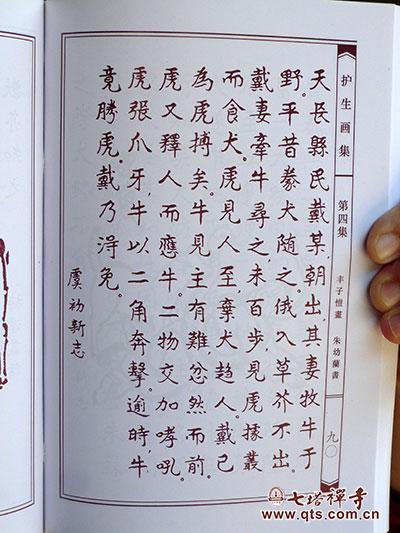 护生画集
第四集
丰子愷畫 朱幼蘭書
九〇
天長縣民戴某,朝出,其妻牧牛于
野。平昔豢犬隨之。俄入草芥不出。
戴妻牽牛尋之,未百步,見虎據叢
而食犬。虎見人至,棄犬趨人。戴已
為虎搏矣。牛見主有難,忿然而前。
虎又釋人而應牛。二物交加哮吼。
虎張爪牙,牛以二角奔擊。逾時,牛
竟勝虎。戴乃淂免。
虞初新志
七塔禪寺
www.qts.com.cn